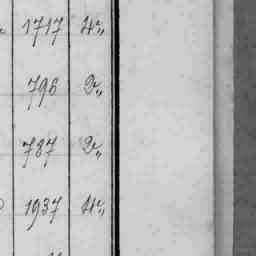 1717 4 "
796 2 "
787 2 "
1937 4 "